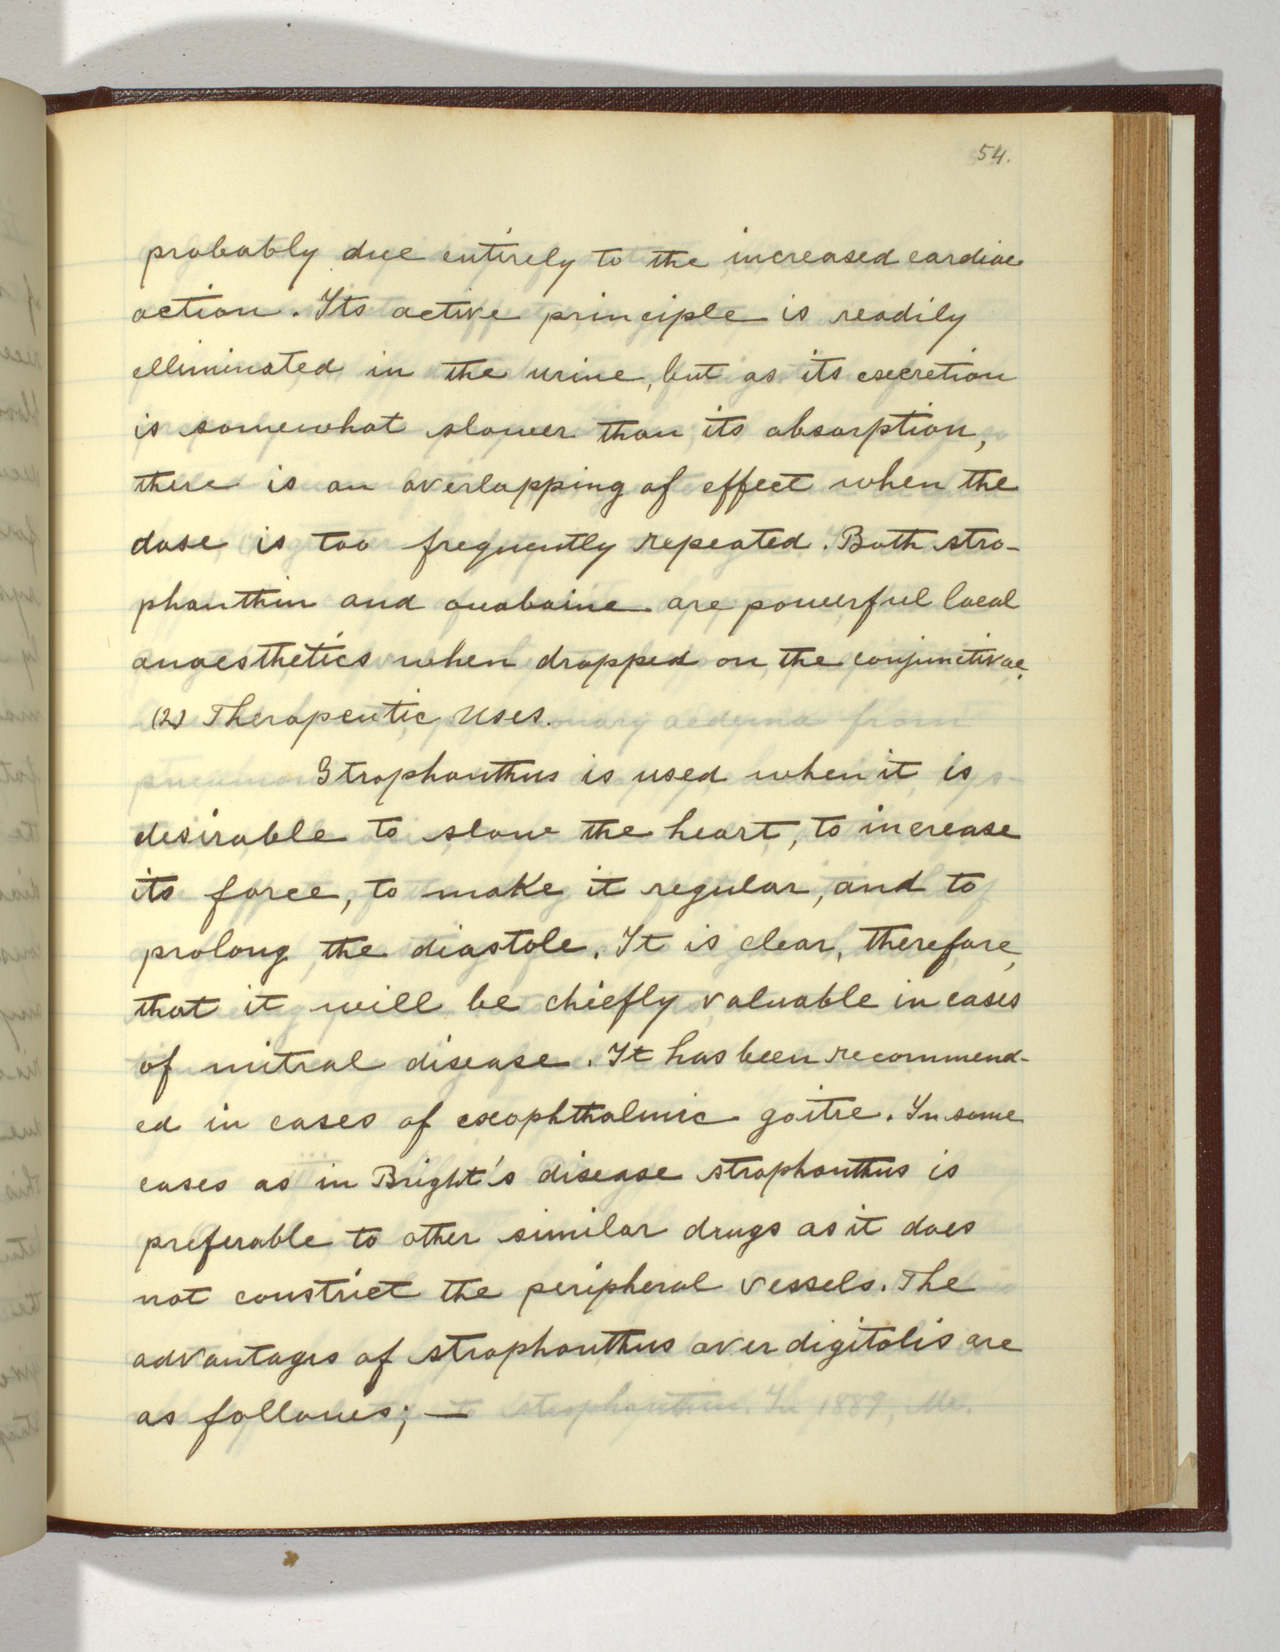 54.
probably due entirely to the increased cardiac
action. Its active principle is readily
elliminated in the urine, but as its excretion
is somewhat slower than its absorption,
there is an overlapping of effect when the
dose is too frequently repeated. Both stro-
phanthin and ouabaine are powerful local
anaesthetics when dropped on the conjunctivae.
(2) Therapeutic Uses.
Strophanthus is used when it is
desirable to slow the heart, to increase
its force, to make it regular, and to
prolong the diastole. It is clear, therefore,
that it will be chiefly valuable in cases
of mitral disease. It has been recommend-
ed in cases of exophthalmic goitre. In some
cases as in Bright's disease strophanthus is
preferable to other similar drugs as it does
not constrict the peripheral vessels. The
advantages of strophanthus over digitalis are
as follows; —